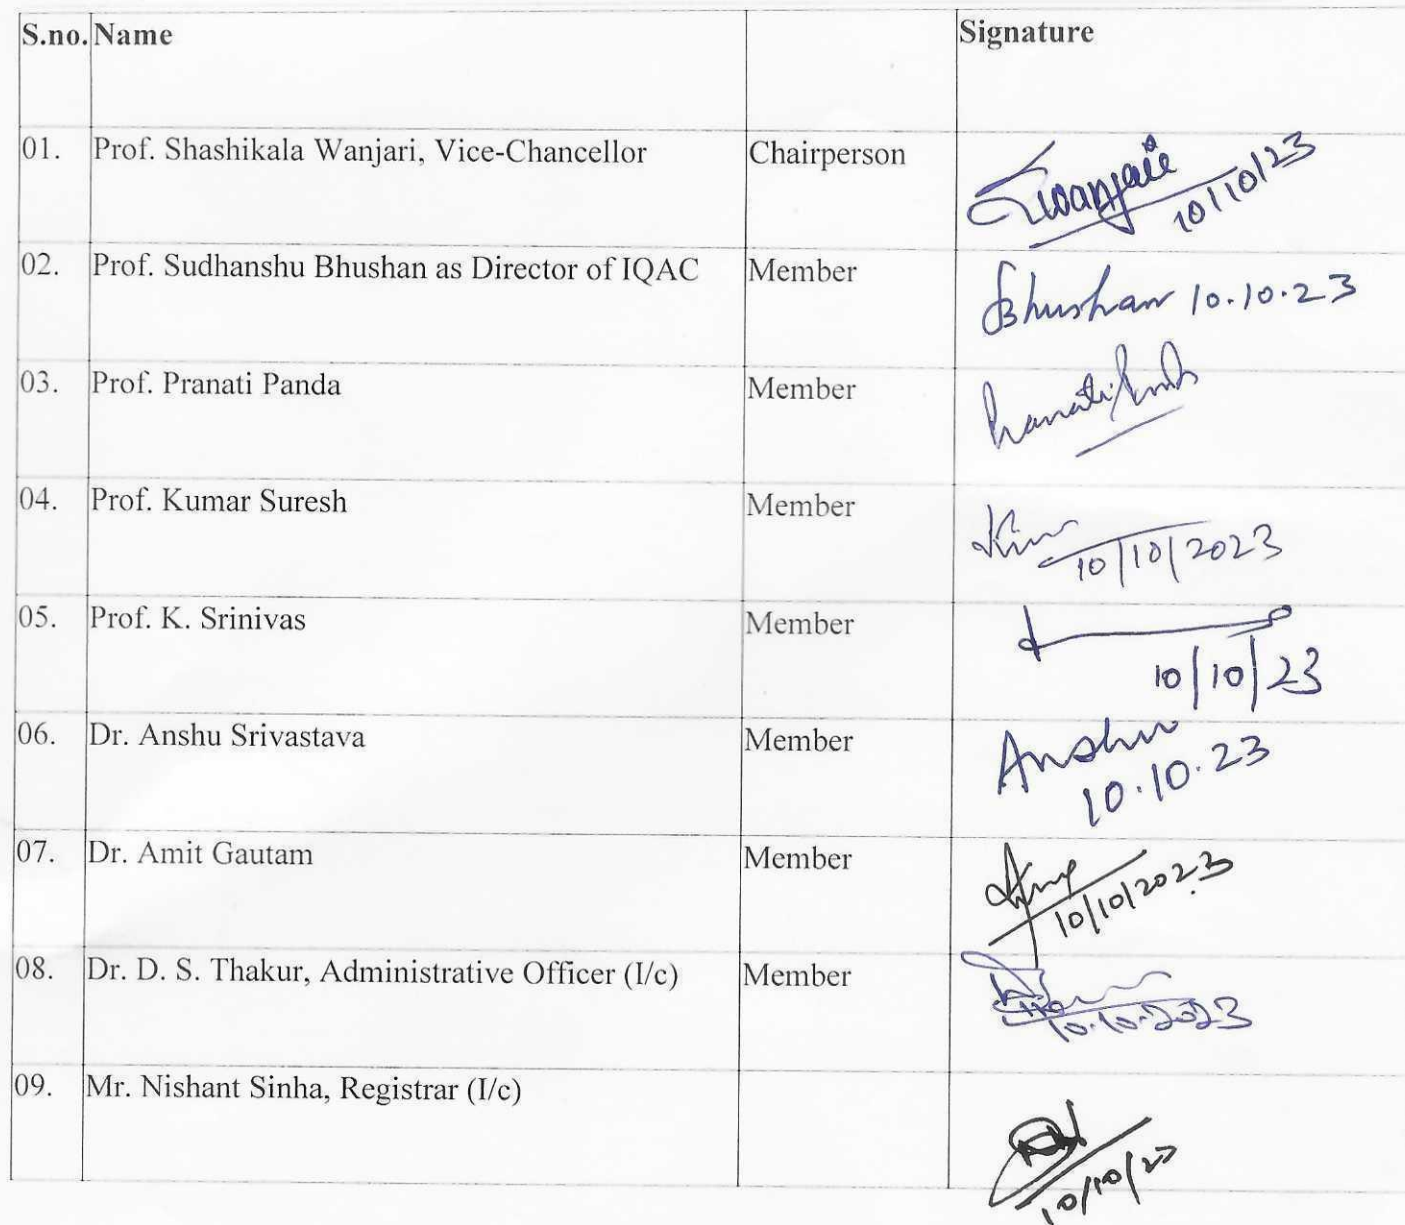 S.no. Name Signature
01. Prof. Shashikala Wanjari, Vice-Chancellor Chairperson
10/10/23
02. Prof. Sudhanshu Bhushan as Director of IQAC Member
Bhushan 10.10.23
03. Prof. Pranati Panda Member
04. Prof. Kumar Suresh Member
10/10/2023
05. Prof. K. Srinivas Member
10/10/23
06. Dr. Anshu Srivastava Member
Anshu
10.10.23
07. Dr. Amit Gautam Member
10/10/2023
08. Dr. D. S. Thakur, Administrative Officer (I/c) Member
10.10.2023
09. Mr. Nishant Sinha, Registrar (I/c)
10/10/23